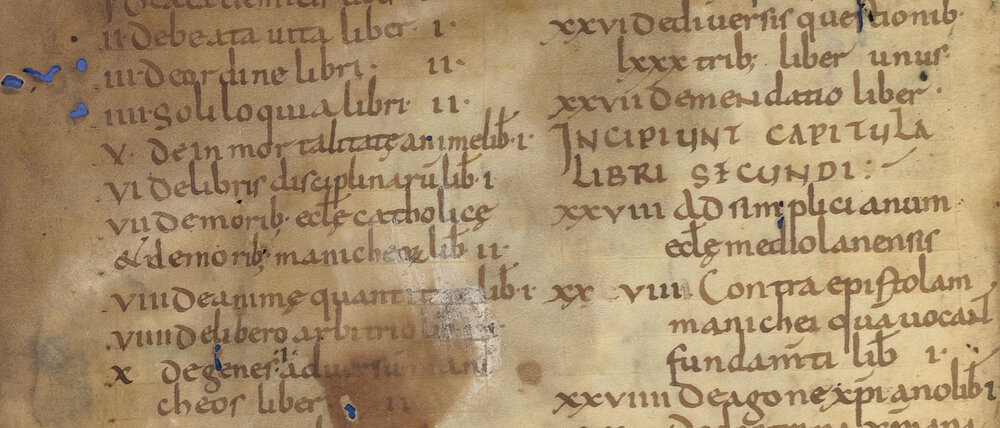 ii De beata uita liber · i ·
iii · De ordine libri · ii ·
iiii · Soliloquia libri · ii ·
v · De inmortalitatę animę lib̄ · i ·
vi De libris disciplinarū lib̄ · i
vii De morib; eclę catholicę
& de morib; manicheoꝝ lib̄ ii ·
viii De animę quantit lib̄ · i
viiii De libero arbitrio
x De genesi aduersū mani
cheos liber · ii
xxvi De diuersis questionib·
lxxx trib; liber unus·
xxvii De mendatio liber ·
INCIPIUNT CAPITULA
LIBRI SECUNDI :
xxviii Ad simplicianum
eclę mediolanensis
xx viiii Contra epistolam
manichei qua uocant
fundam̄ti lib̄ i ·
xxviiii De agone xp̄iano lib̄ i